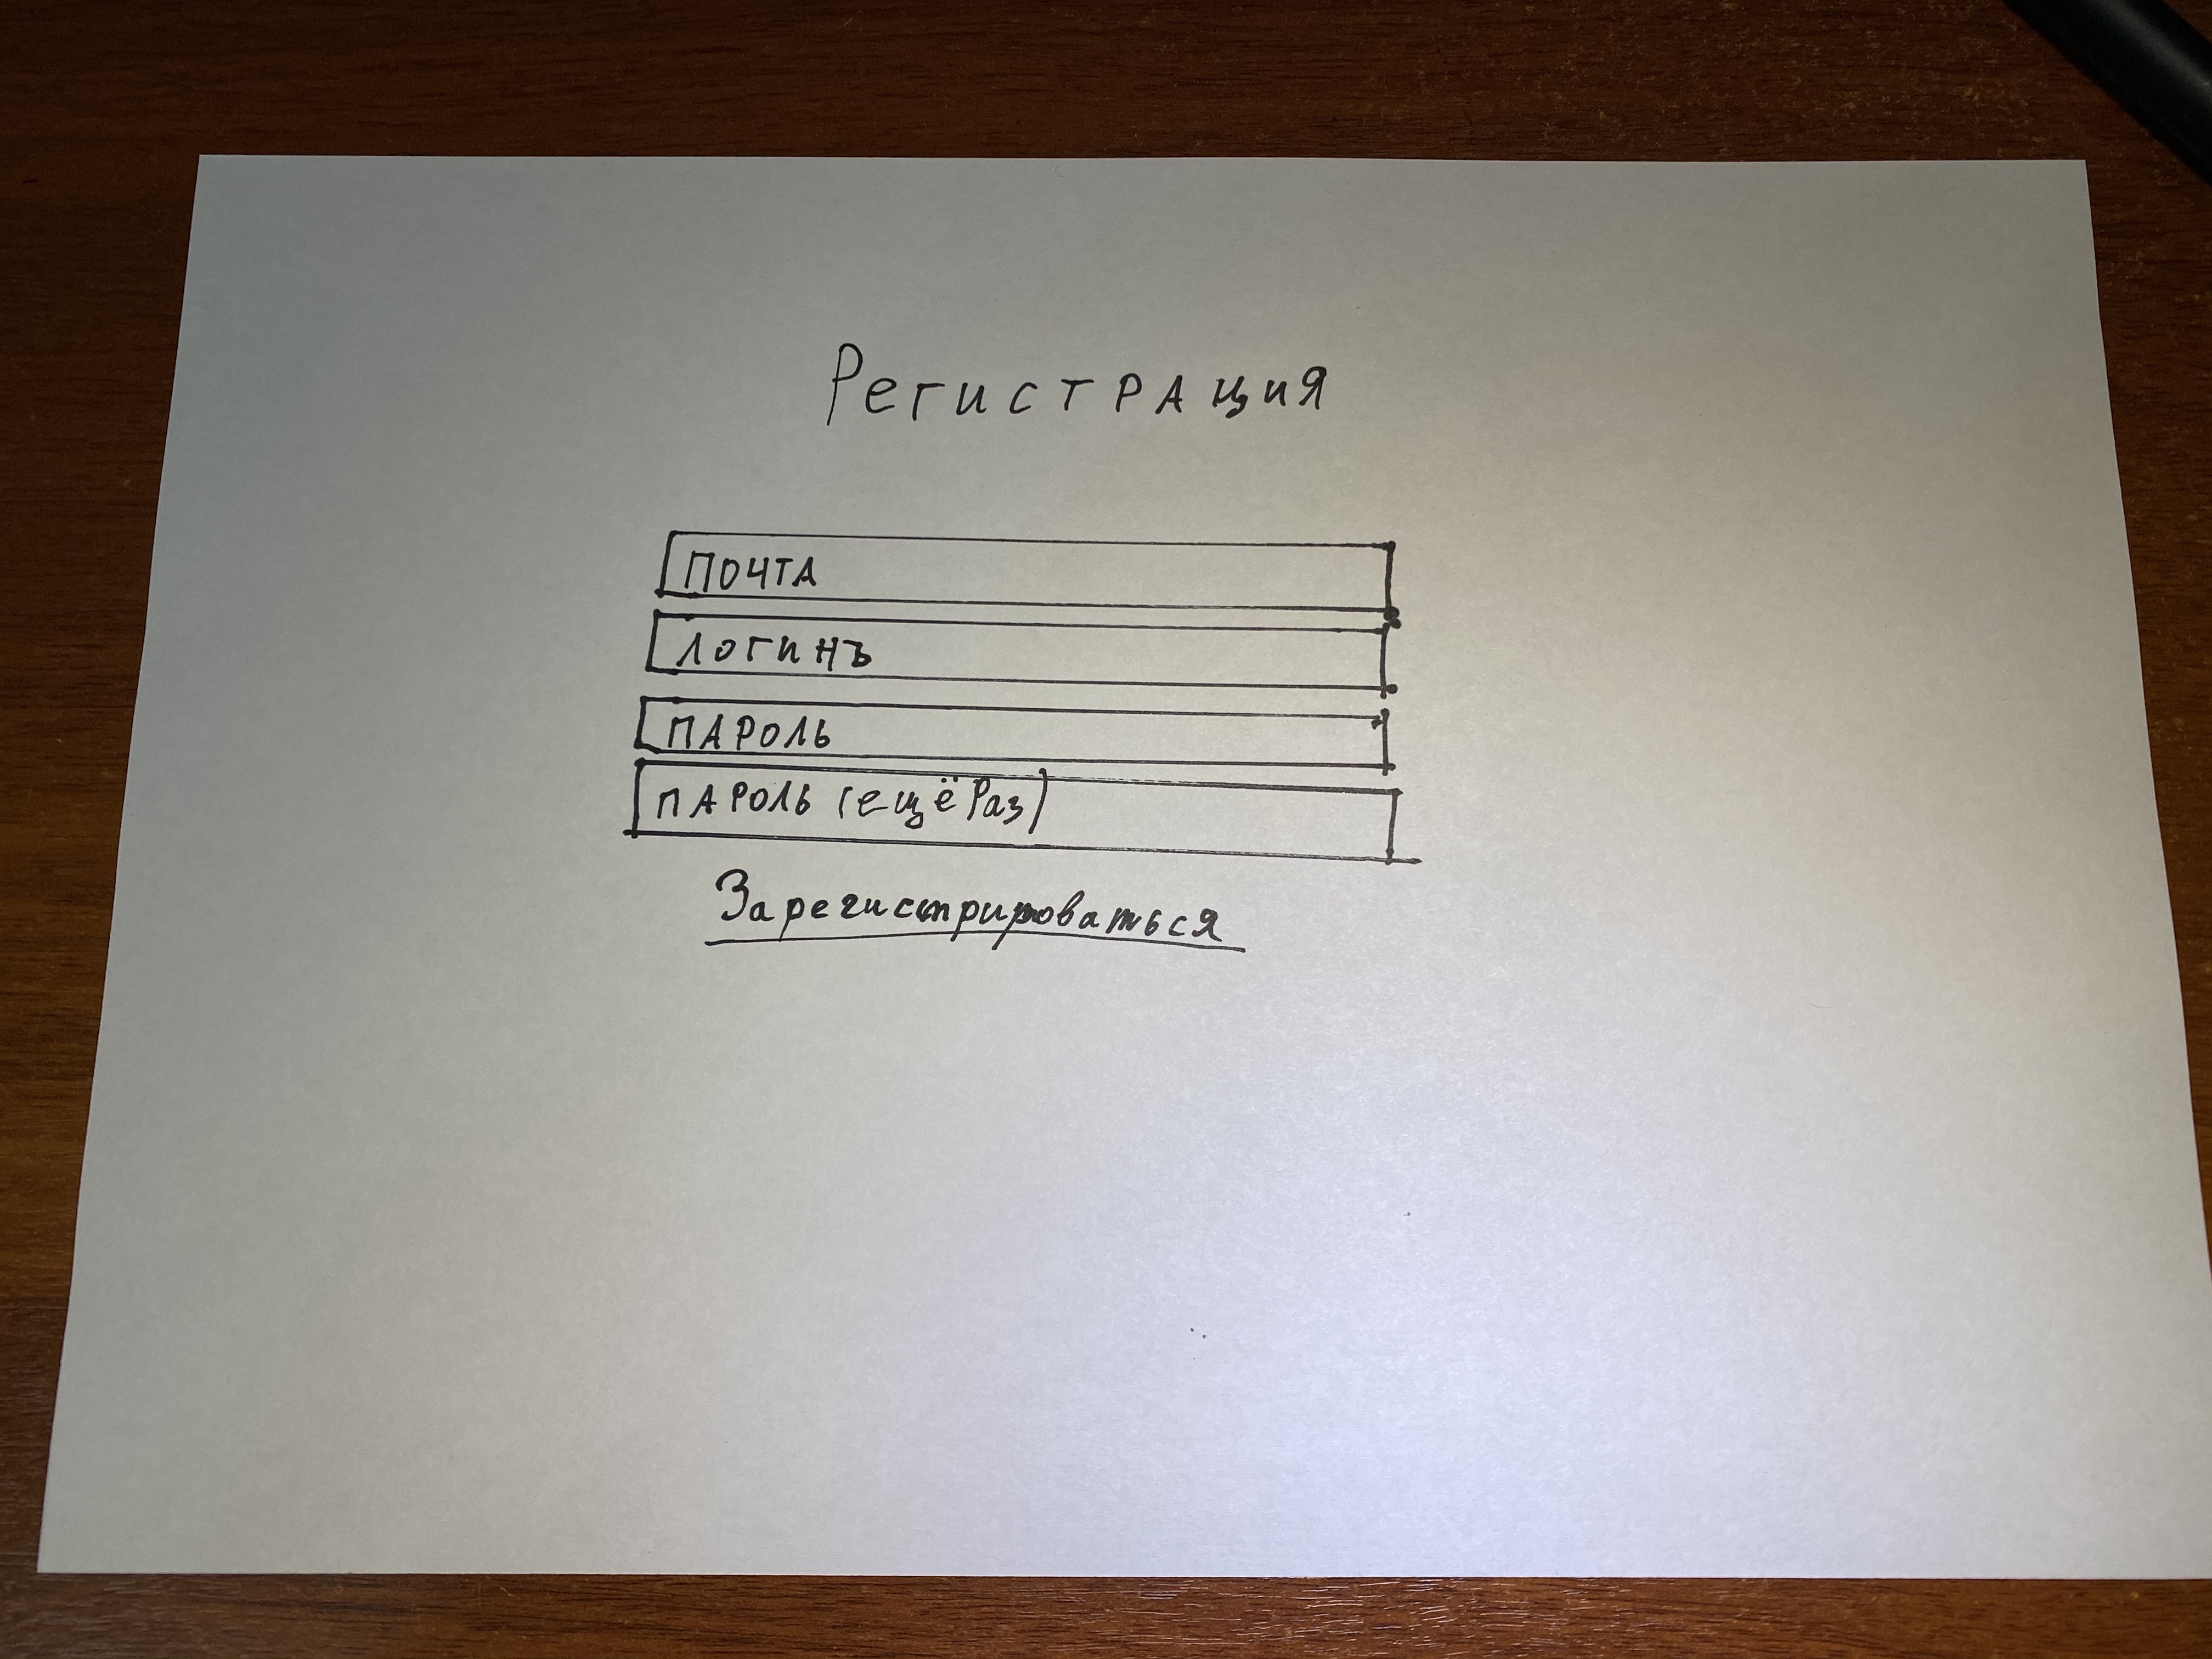 Регистрация
ПОЧТА
ЛОГИНЪ
ПАРОЛЬ
ПАРОЛЬ (ещё Раз)
Зарегистрироваться